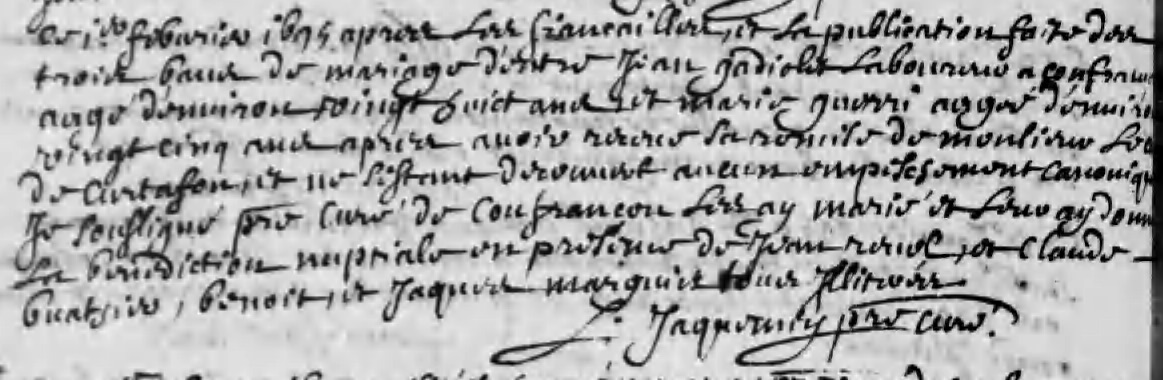 ce 1er febvrier 1695 apres les fiancailles, et la publication faite des
trois bans de mariage d'entre Jean gadiolet laboureur a confran
aagé d'environ vingt huict ans et marie guerri aggée d'enviro
vingt cinq ans apres avoir receu la remise de monsieur le cu
de Curtafon, et ne s'estant decouvert aucun empeschement canoniqu
Je soussigné pre curé de Confrançon les ay marié et leur ay donn
la benediction nuptiale en presence de Jean ravel, et Claude
buatsier, benoit, et Jaques marguin tous Illiteres
Jaquemey pre curé.